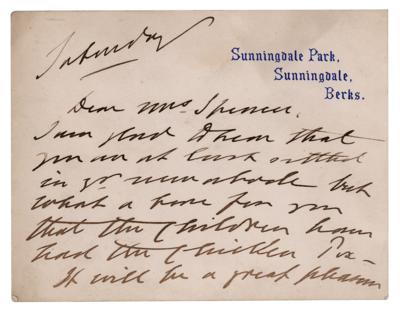 Saturday
Sunningdale Park,
Sunningdale,
Berks.
Dear Mrs. Spencer,
I am glad to hear that
you are at last settled
in yr new abode but
what a bore for you
that the Children have
had the Chicken Pox -
It will be a great pleasure